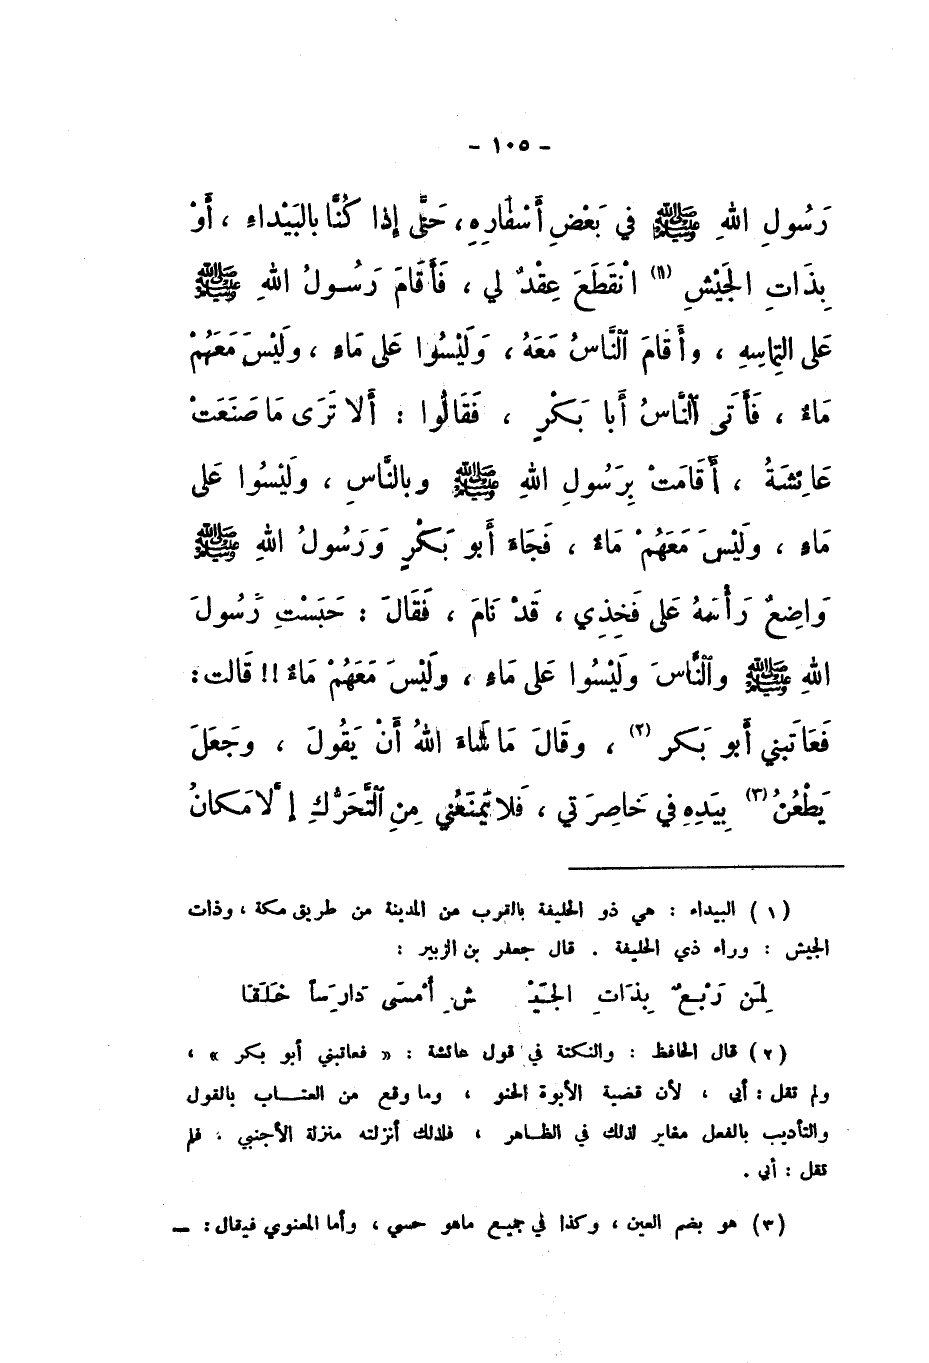 - ١٠٥ -
رَسُولِ اللهِ ﷺ في بَعْضِ أَسْفَارِهِ، حَتَّى إِذا كُنَّا بالبَيْداءِ ، أَوْ
بِذَاتِ الجَيْشِ (١) انْقَطَعَ عِقْدٌ لي ، فَأَقَامَ رَسُولُ اللهِ ﷺ
عَلى التِماسِهِ ، وأَقامَ النَّاسُ مَعَهُ ، وَلَيْسُوا عَلى مَاءٍ ، ولَيْسَ مَعَهُمْ
مَاءٌ ، فَأَتى النَّاسُ أَبا بَكْرٍ ، فَقَالُوا : أَلا تَرَى مَا صَنَعَتْ
عَائِشَةُ ، أَقَامَتْ بِرَسُولِ اللهِ ﷺ وبالنَّاسِ ، ولَيْسُوا عَلى
مَاءٍ ، ولَيْسَ مَعَهُمْ مَاءٌ ، فَجَاءَ أَبو بَكْرٍ وَرَسُولُ اللهِ ﷺ
وَاضِعٌ رَأْسَهُ عَلى فَخِذِي ، قَدْ نَامَ ، فَقَالَ : حَبَسْتِ رَسُولَ
اللهِ ﷺ والنَّاسَ ولَيْسُوا عَلى مَاءٍ ، ولَيْسَ مَعَهُمْ مَاءٌ !! قَالت :
فَعَاتَبني أَبو بَكر (٢) ، وقَالَ مَا شَاءَ اللهُ أَنْ يَقُولَ ، وجَعَلَ
يَطْعُنُ (٣) بِيَدِهِ في خَاصِرَتي ، فَلا يَمْنَعُني مِنِ التَّحَرُّكِ إِلا مَكانُ
(١) البيداء : هي ذو الحليفة بالقرب من المدينة من طريق مكة ، وذات
الجيش : وراء ذي الحليفة . قال جعفر بن الزبير :
لِمَن رَبْعٌ بِذَاتِ الجَيْـ ـشِ أَمْسَى دَارِسَاً خَلَقا
(٢) قال الحافظ : والنكتة في قول عائشة : « فعاتبني أبو بكر » ،
ولم تقل : أبي ، لأن قضية الأبوة الحنو ، وما وقع من العتـاب بالقول
والتأديب بالفعل مغاير لذلك في الظـاهر ، فلذلك أنزلته منزلة الأجنبي ، فلم
تقل : أبي .
(٣) هو بضم العين ، وكذا في جميع ماهو حسي ، وأما المعنوي فيقال : ـ